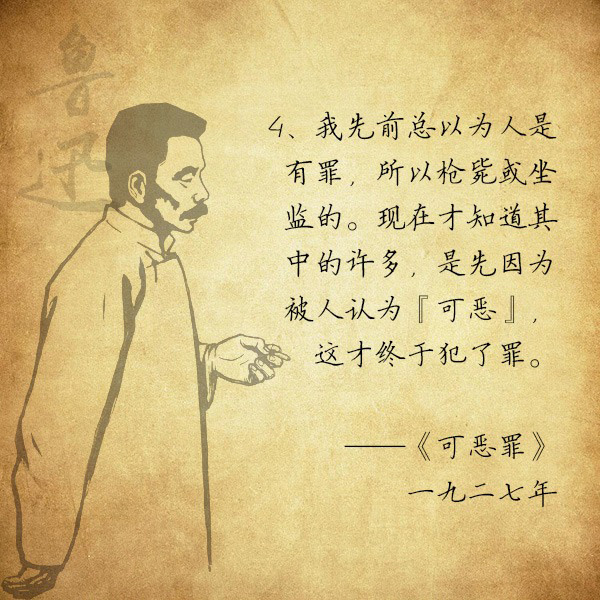 鲁迅
4、我先前总以为人是
有罪，所以枪毙或坐
监的。现在才知道其
中的许多，是先因为
被人认为『可恶』，
这才终于犯了罪。
——《可恶罪》
一九二七年